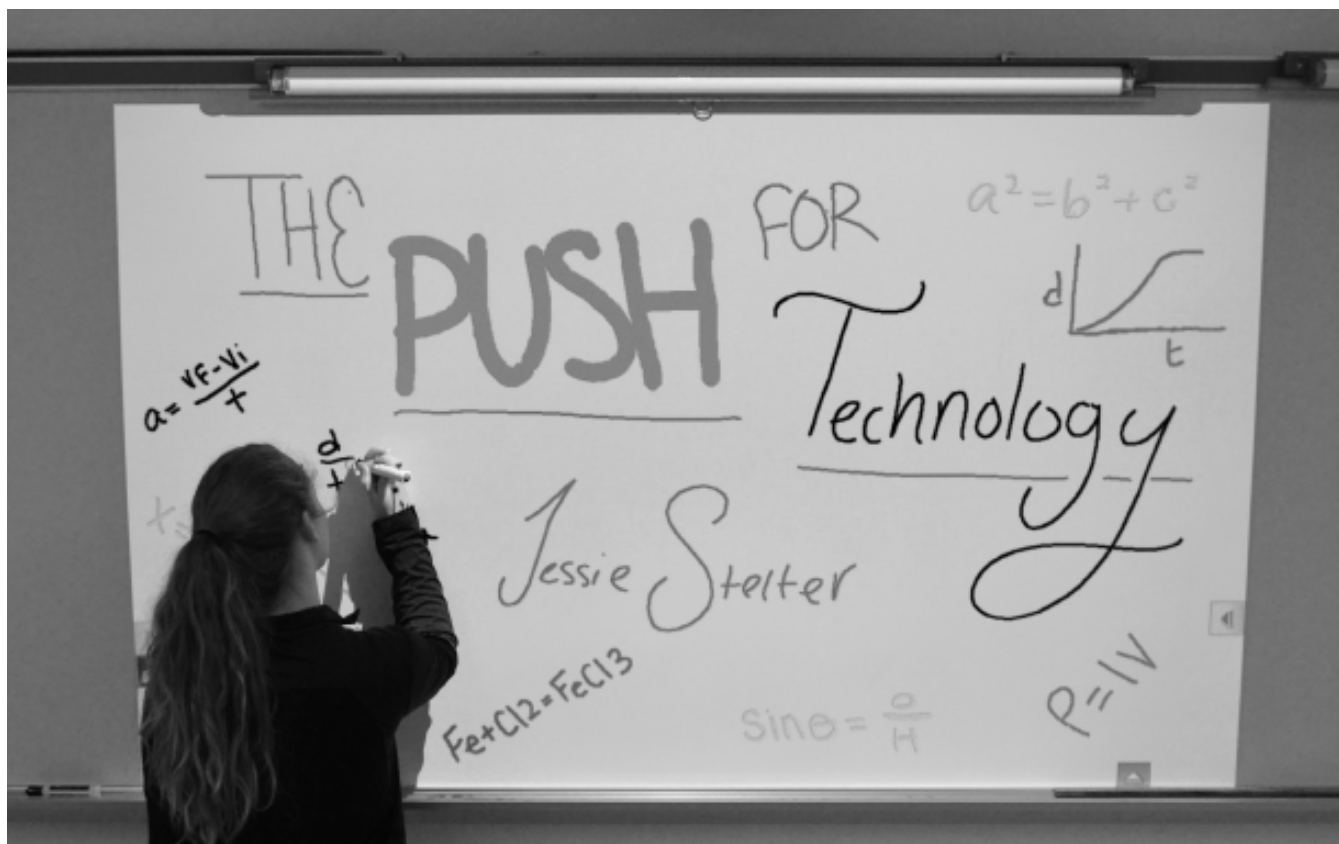 THE PUSH FOR
Technology
Jessie Stelter
a² = b² + c²
d
t
a = VF - Vi / t
d / t
t =
Fe + Cl2 = FeCl3
Sinθ = O / H
P = IV